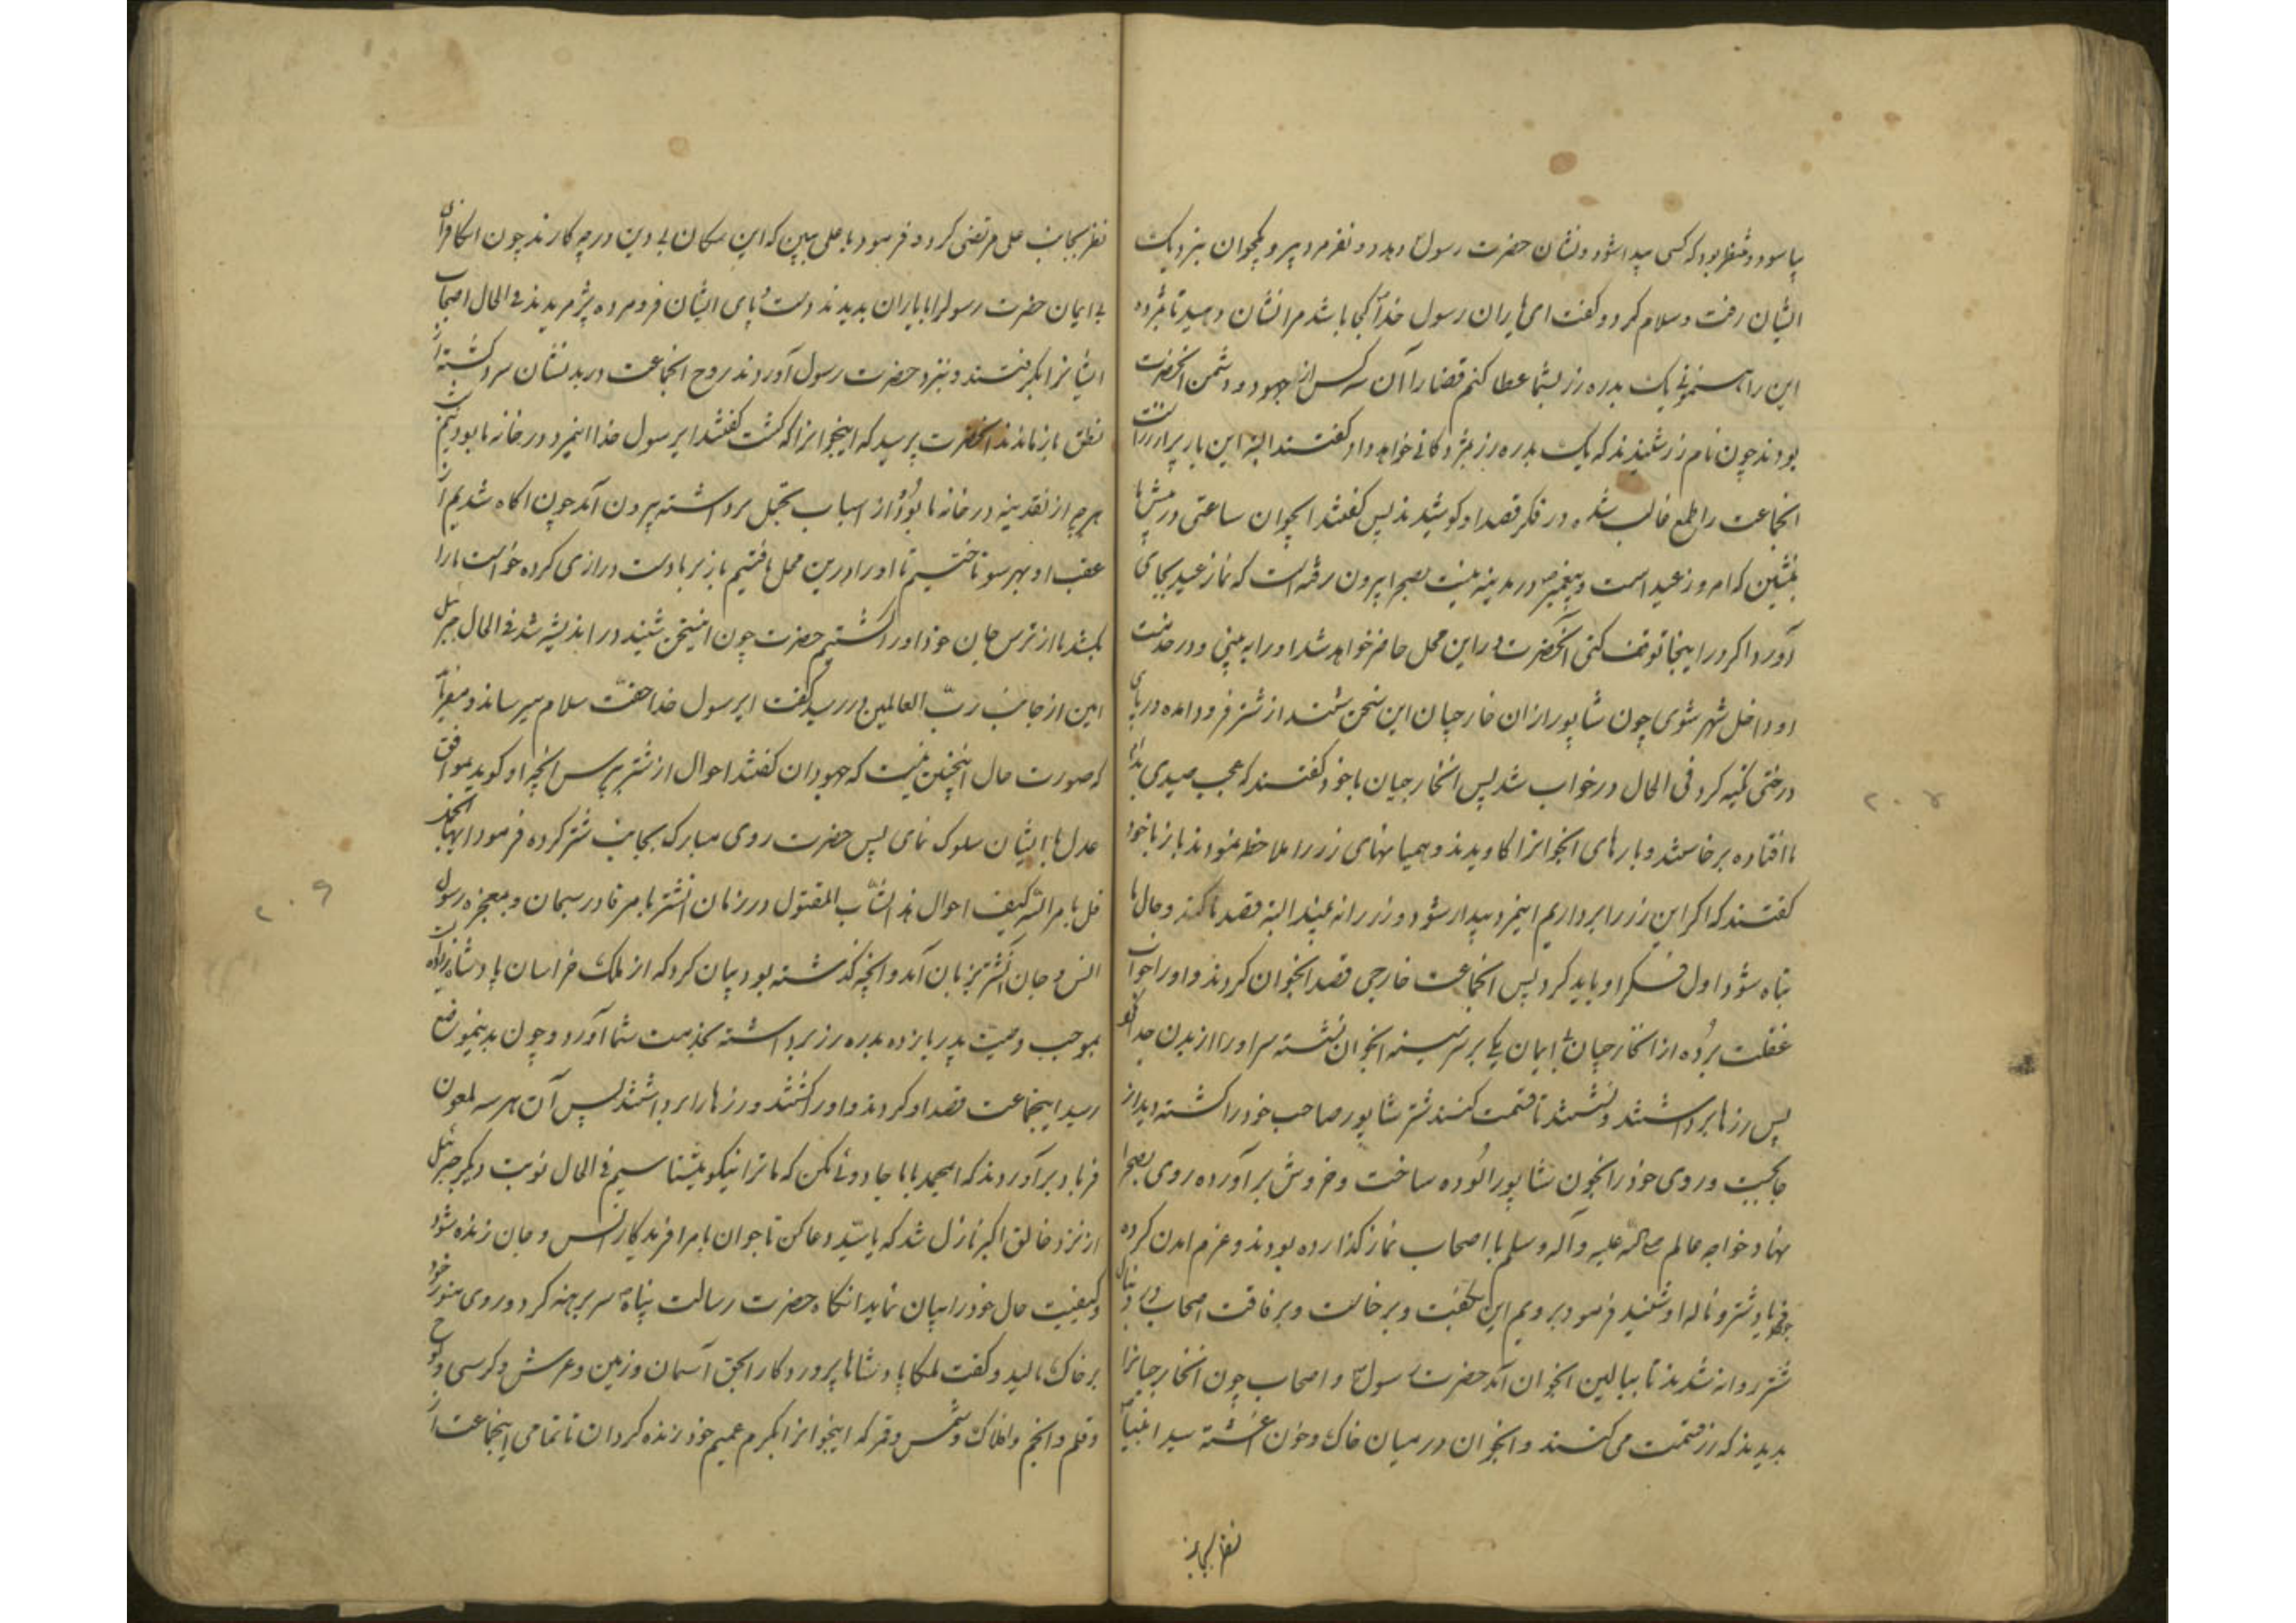 بیاسود و منتظر بود که کسی پیدا شود و نشان حضرت رسول دهد دو نفر مرد پیر و یکجوان بنزدیک
ایشان رفت و سلام کرد و کفت ای یاران رسول خدا کجا باشد مرا نشان دهید تا بمژده
این راهنمونی یک بدره زر بشما عطا کنم قضا را آن سه کس از جهود و دشمن آنحضرت
بودند چون نام زر شنیدند که یک بدره زر بمژدکانی خواهد داد کفتند البته این بار پر از زر است
انجماعت را طمع غالب شده در فکر قصد او کوشیدند پس کفتند ایجوان ساعتی در پیش ما
بنشین که امروز عید است و پیغمبر در مدینه نیست بصحرا بیرون رفته است که نماز عید بجای
آورد اکر در اینجا توقف کنی آنحضرت در این محل حاضر خواهد شد او را به بینی و در خدمت
او داخل شهر شوی چون شاپور از ان خارجیان این سخن شنید از شتر فرود امده در پای
درختی تکیه کرد فی الحال در خواب شد پس انخارجیان با خود کفتند که عجب صیدی بدام
ما افتاده برخاستند و بارهای انجوانرا کاویدند و همیانهای زر را ملاحظه نمودند باز با خود
کفتند که اکر این زر را برداریم اینمرد بیدار شود و زر را نه بیند البته قصد ما کند و حال ما
تباه شود اول فکر او باید کرد پس انجماعت خارجی قصد انجوان کردند و او را خواب
غفلت برده از انخارجیان بی ایمان یکی بر سر سینه انجوان نشسته سر او را از بدن جدا نمود
پس زرها برداشتند و نشستند تا قسمت کنند شتر شاپور صاحب خود را کشته دید از
جا بجست و روی خود را بخون شاپور الوده ساخت و خروش برآورده روی بصحرا
نهاد و خواجه عالم صلی الله علیه و آله وسلم با اصحاب نماز کذارده بودند و عزم امدن کرده
فریاد شتر و ناله او شنید فرمود برویم این بکفت و برخاست و برفاقت اصحاب در دنبال
شتر روانه شدند تا ببالین انجوان آمد حضرت رسول و اصحاب چون انخارجیانرا
بدیدند که زر قسمت می کنند و انجوان در میان خاک و خون اغشته سید انبیا
نظر بجانب
۲۰۸
نظر بجانب علی مرتضی کرد و فرمود یا علی ببین که این سکان بی دین در چه کارند چون انکافران
بی ایمان حضرت رسولرا با یاران بدیدند دست و پای ایشان فرو مرده پژمریدند فی الحال اصحاب
ایشانرا بکرفتند و بنزد حضرت رسول آوردند روح انجماعت در بدنشان سرد کشته از
نطق باز ماندند آنحضرت پرسید که اینجوانرا که کشت کفتند ایرسول خدا اینمرد در خانه ما بود نیم شب
هرچه از نقدینه در خانه ما بود از اسباب تجمل برداشته بیرون آمد چون اکاه شدیم از
عقب او بهر سو تاختیم تا او را درین محل یافتیم باز بر ما دست درازی کرده خواست ما را
بکشد ما از ترس جان خود او را کشتیم حضرت چون این سخن شنید در اندیشه شد فی الحال جبرئیل
امین از جانب رب العالمین در رسید کفت ایرسول خدا حقت سلام میرساند و میفرماید
که صورت حال اینچنین نیست که جهودان کفتند احوال از شتر بپرس انچه او کوید بموافق
عدل با ایشان سلوک نمای پس حضرت روی مبارک بجانب شتر کرده فرمود ایها الجمل
قل بامر الله کیف احوال هذا الشاب المقتول در زمان انشتر بامر قادر سبحان و بمعجزه رسول
انس و جان انشتر بزبان آمد و انچه کذشته بود بیان کرد که از ملک خراسان پادشاه زاده
بموجب وصیت پدر یازده بدره زر برداشته بخدمت شما آورد و چون بدینموضع
رسید اینجماعت قصد او کردند و او را کشتند و زرها را برداشتند پس آن هر سه ملعون
فریاد برآوردند که ایمحمد با ما جادوئی مکن که ما ترا نیکو میشناسیم فی الحال نوبت دیکر جبرئیل
از نزد خالق اکبر نازل شد که یا سید دعا کن تا جوان بامر افریدکار انس و جان زنده شود
و کیفیت حال خود را بیان نماید انکاه حضرت رسالت پناه سر برهنه کرد و روی منور خود
بر خاک مالید و کفت ملکا پادشاها پروردکارا بحق آسمان و زمین و عرش و کرسی و لوح
و قلم و انجم و افلاک و شمس و قمر که اینجوانرا بکرم عمیم خود زنده کردان تا تمامی اینجماعت از
۲۰۹